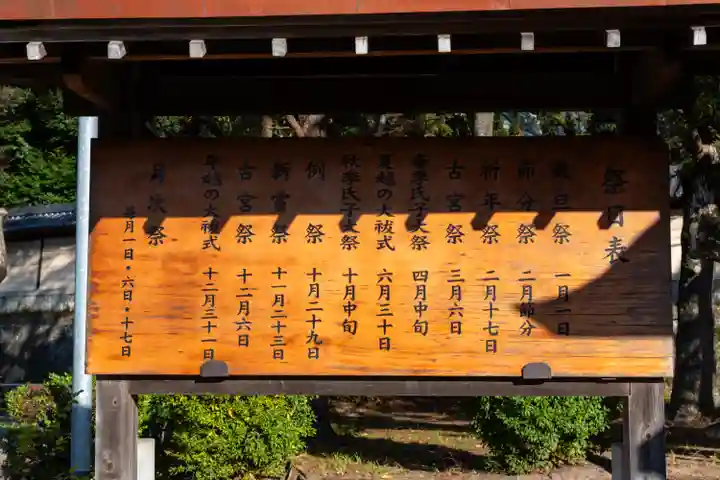 祭日表
歳旦祭 一月一日
節分祭 二月節分
祈年祭 二月十七日
古宮祭 三月六日
春季氏子大祭 四月中旬
夏越の大祓式 六月三十日
秋季氏子大祭 十月中旬
例祭 十月二十九日
新嘗祭 十一月二十三日
古宮祭 十二月六日
年越の大祓式 十二月三十一日
月次祭 毎月一日・六日・十七日